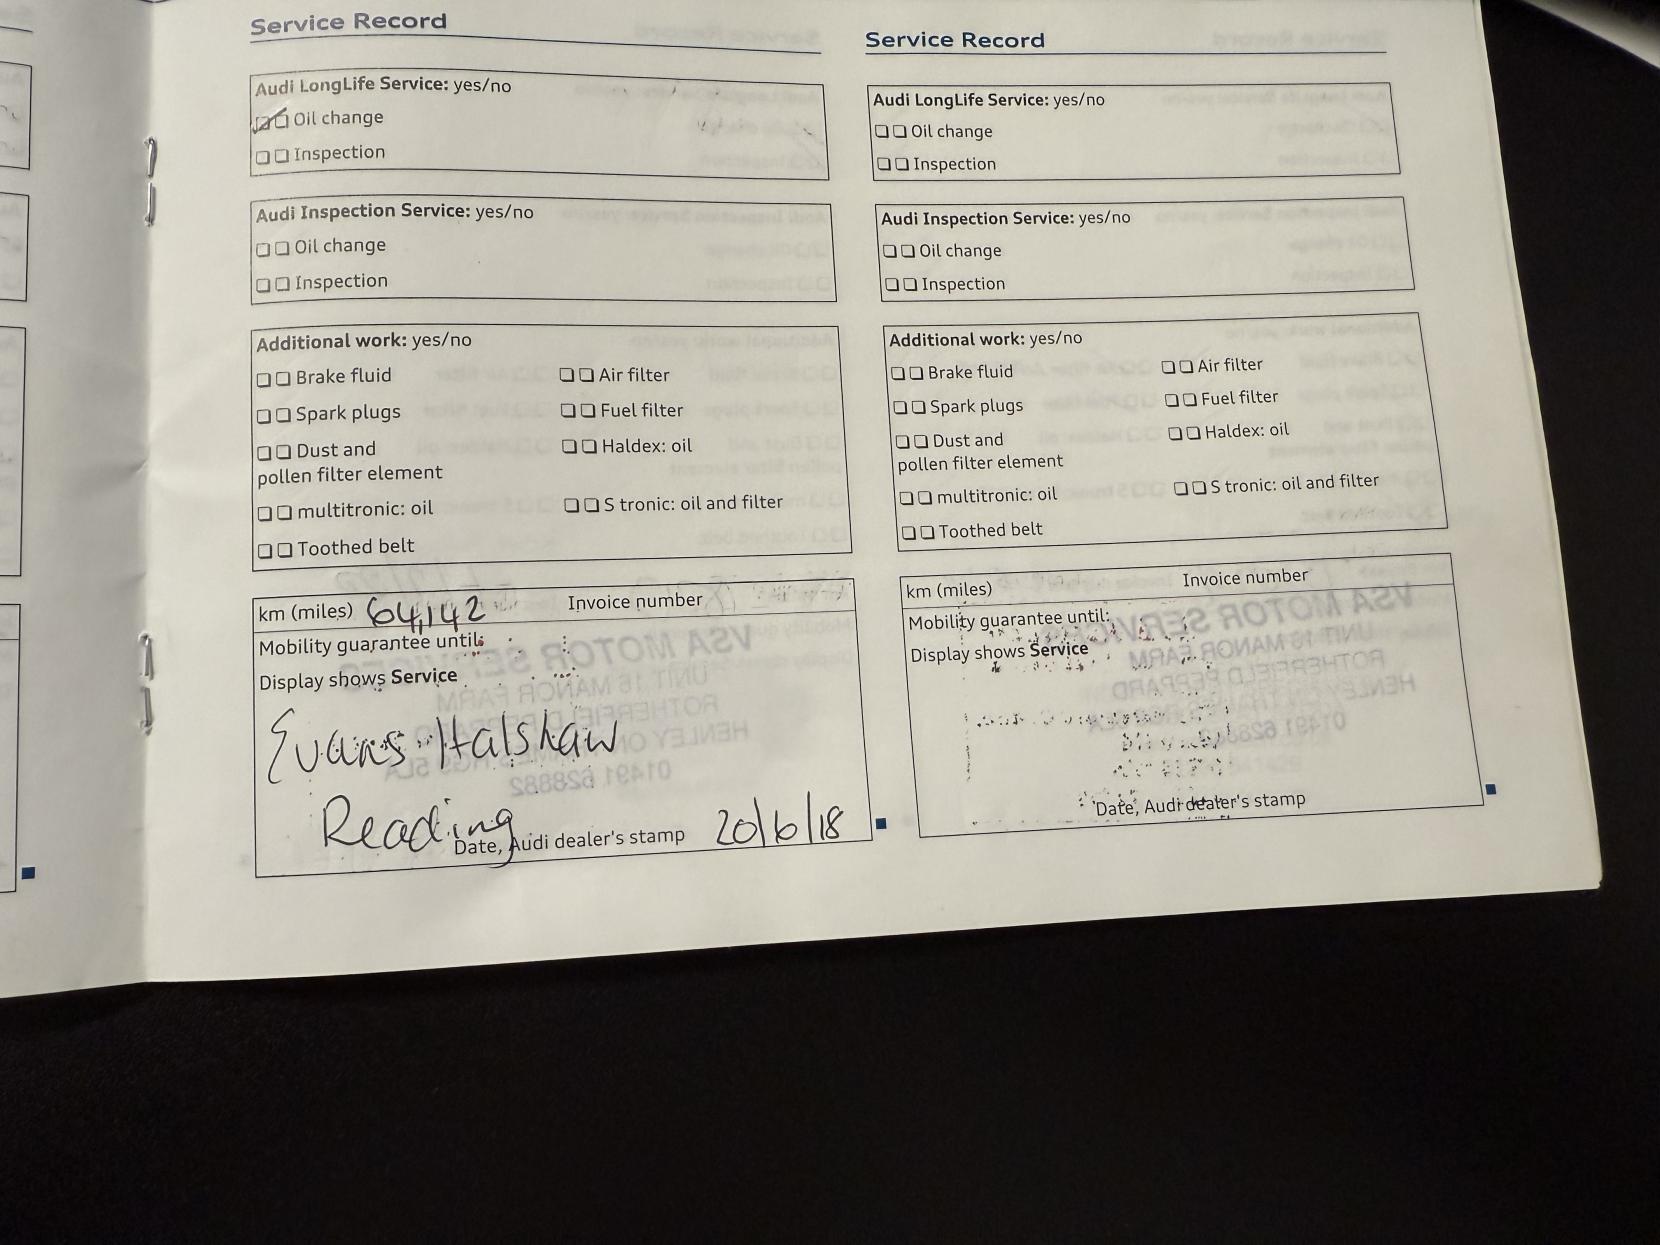 Service Record
Audi LongLife Service: yes/no
Oil change
Inspection
Audi Inspection Service: yes/no
Oil change
Inspection
Additional work: yes/no
Brake fluid
Air filter
Spark plugs
Fuel filter
Dust and
pollen filter element
Haldex: oil
multitronic: oil
S tronic: oil and filter
Toothed belt
km (miles) 64,142 Invoice number
Mobility guarantee until:
Display shows Service
Evans Halshaw
Reading
Date, Audi dealer's stamp 20/6/18
Service Record
Audi LongLife Service: yes/no
Oil change
Inspection
Audi Inspection Service: yes/no
Oil change
Inspection
Additional work: yes/no
Brake fluid
Air filter
Spark plugs
Fuel filter
Dust and
pollen filter element
Haldex: oil
multitronic: oil
S tronic: oil and filter
Toothed belt
km (miles) Invoice number
Mobility guarantee until:
Display shows Service
Date, Audi dealer's stamp
VSA MOTOR SERVICES
UNIT 16 MANOR FARM
ROTHERFIELD PEPPARD